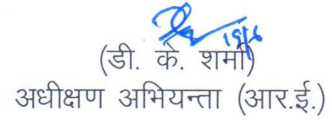 19/6
(डी. के. शर्मा)
अधीक्षण अभियन्ता (आर.ई.)